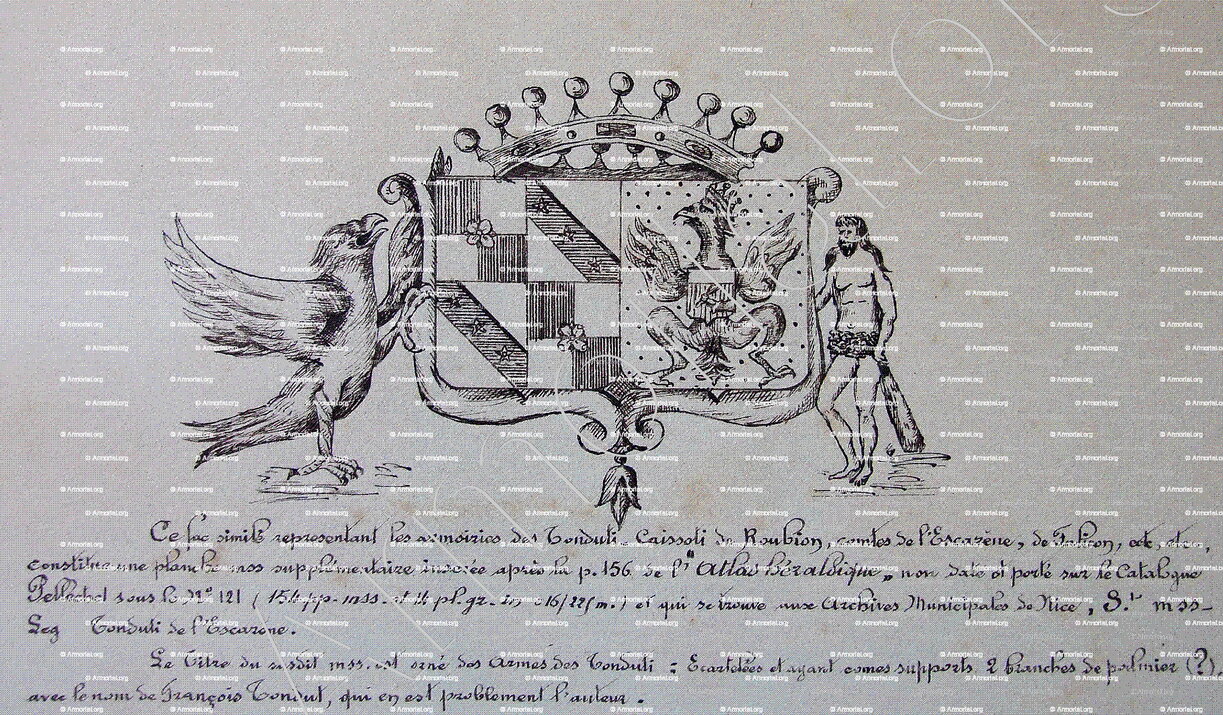 Ce fac simile representant les armoiries des Tonduti-Caissoti de Roubion, comtes de l'Escarène, de Falicon, etc, etc,
constitue une planche mss supplémentaire insérée après la p. 156 de l'"Atlas héraldique" non daté et porté sur le Catalogue
Pellechet sous le N° 121 (154 pp. mss. et 16 pl. gr. in 4° 16/22 m.) et qui se trouve aux Archives Municipales de Nice, S.t mss-
Leg Tonduti de l'Escarène.
Le Titre du susdit mss. est orné des Armes des Tonduti : Ecartelées et ayant comes supports 2 branches de palmier (?),
avec le nom de François Tondut, qui en est problement l'auteur.
© Armorial.org